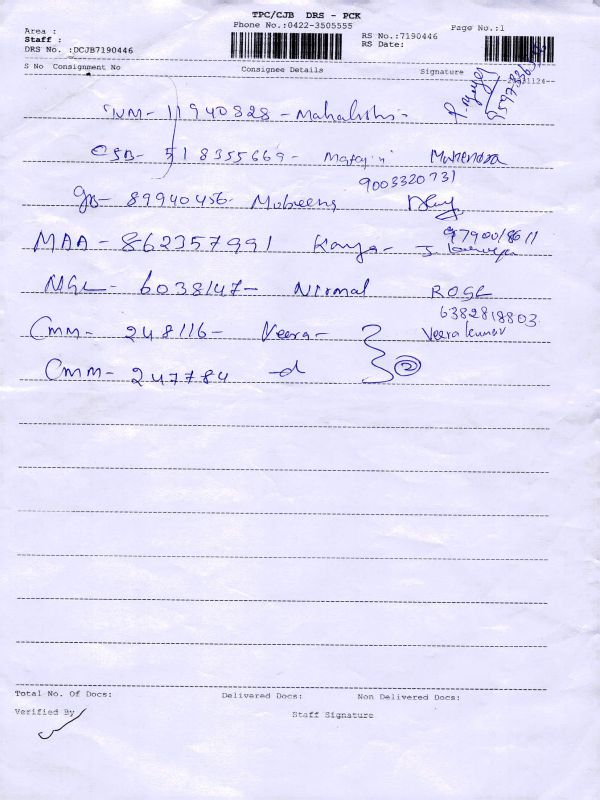 TPC/CJB DRS - PCK
Phone No.:0422-3505555
Page No.:1
Area :
Staff :
DRS No. :DCJB7190446
RS No.:7190446
RS Date:
S No Consignment No Consignee Details Signature
NM- 11940828 - Mahalakshmi -
CSB- 518355669-
Mahendra
9003320731
89940456- Mubeena
MAA - 862357991 Kavya-
9790018611
NGL- 6038147- Nirmal ROGL
6382818803
Cmm- 248116- Veera- Veera kumar
Cmm- 247784 -d 2
Total No. Of Docs: Delivered Docs: Non Delivered Docs:
Verified By
Staff Signature